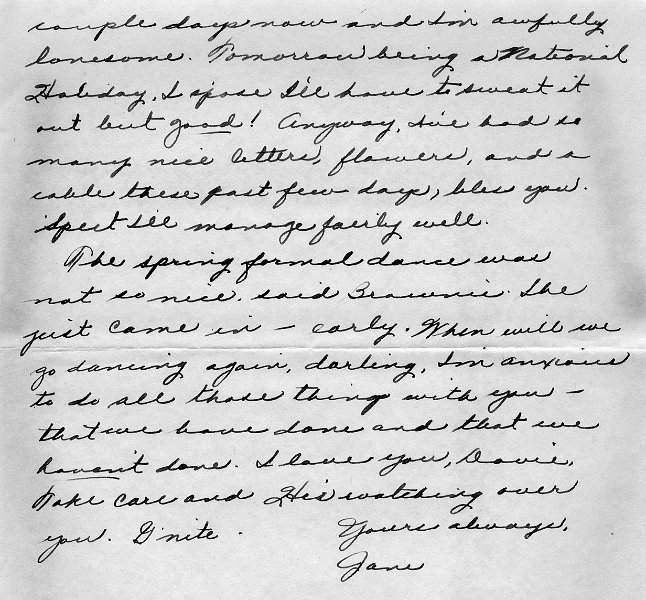 couple days now and I'm awfully
lonesome. Tomorrow being a National
Holiday, I spose I'll have to sweat it
out but good! Anyway, I've had so
many nice letters, flowers, and a
cable these past few days, bles you.
'Spect I'll manage fairly well.
The spring formal dance was
not so nice. said Brownie. She
just came in - early. When will we
go dancing again, darling, I'm anxious
to do all those things with you -
that we have done and that we
haven't done. I love you, Davie.
Take care and He's watching over
you. G'nite. Yours always,
Jane